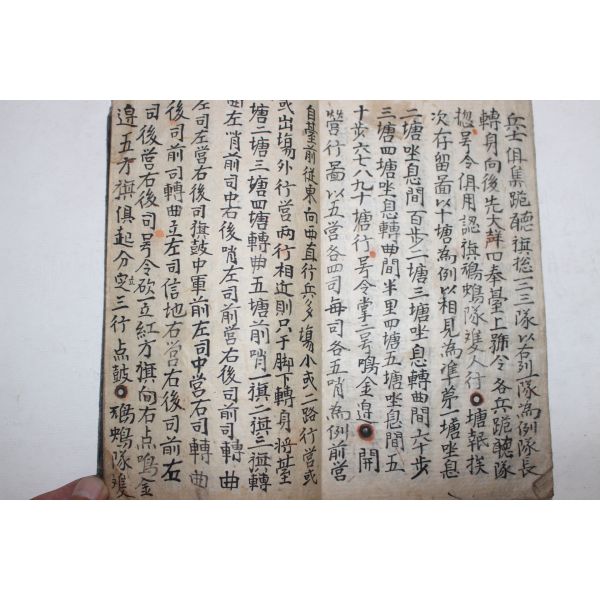 兵士俱集跪聽旗摠一二三隊以右列隊為例隊長
轉身向後先大聲口奉臺上號令各兵跪聽隊
摠号令俱用認旗鴉隊雙人行塘報挨
次存留圖以十塘為例以相見為准苐一塘坐息
二塘坐息間百步二塘三塘坐息轉曲間六十步
三塘四塘坐息轉曲間半里四塘五塘坐息間五
十步六七八九十塘行号令掌二号鳴金邊開
營行啚以五營各四司每司各五哨為例前營
自臺前從東向西直行兵多塲小或二路行營或
或出塲外行營两行相近則只于脚下轉身將臺
塘二塘三塘四塘轉曲五塘前哨一旗二旗三旗轉
曲左哨前司中右後哨左司前營右後司前司轉曲
左司左營右後司旗鼓中軍前左司中營右司轉曲
後司前司轉曲立左司信地右營右後司前右
司後營右後司号令砍一立紅方旗向右点鳴金
邊五方旗俱起分立三行点鼓鴉隊雙